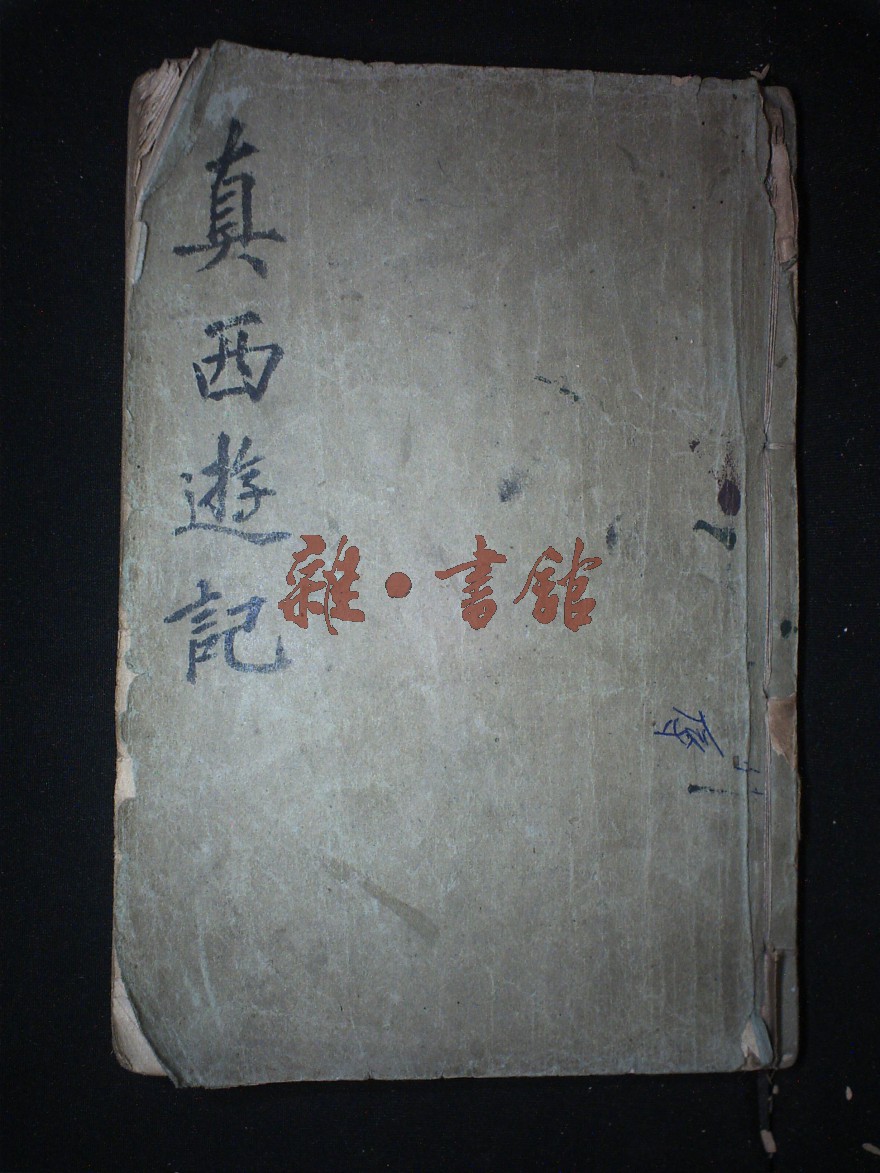 真西遊記
雜·書館